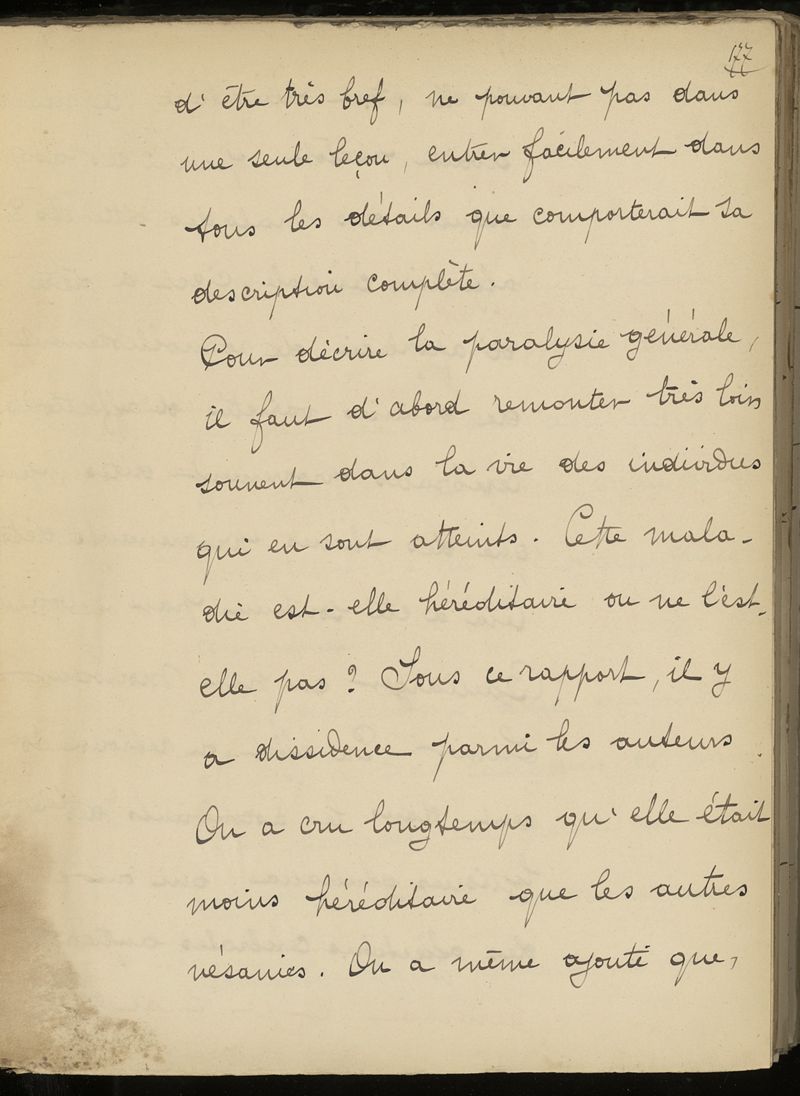 177
d'être très bref, ne pouvant pas dans
une seule leçon, entrer facilement dans
tous les détails que comporterait sa
description complète.
Pour décrire la paralysie générale,
il faut d'abord remonter très loin
souvent dans la vie des individus
qui en sont atteints. Cette mala-
die est-elle héréditaire ou ne l'est-
elle pas ? Sous ce rapport, il y
a dissidence parmi les auteurs.
On a cru longtemps qu'elle était
moins héréditaire que les autres
vésanies. On a même ajouté que,